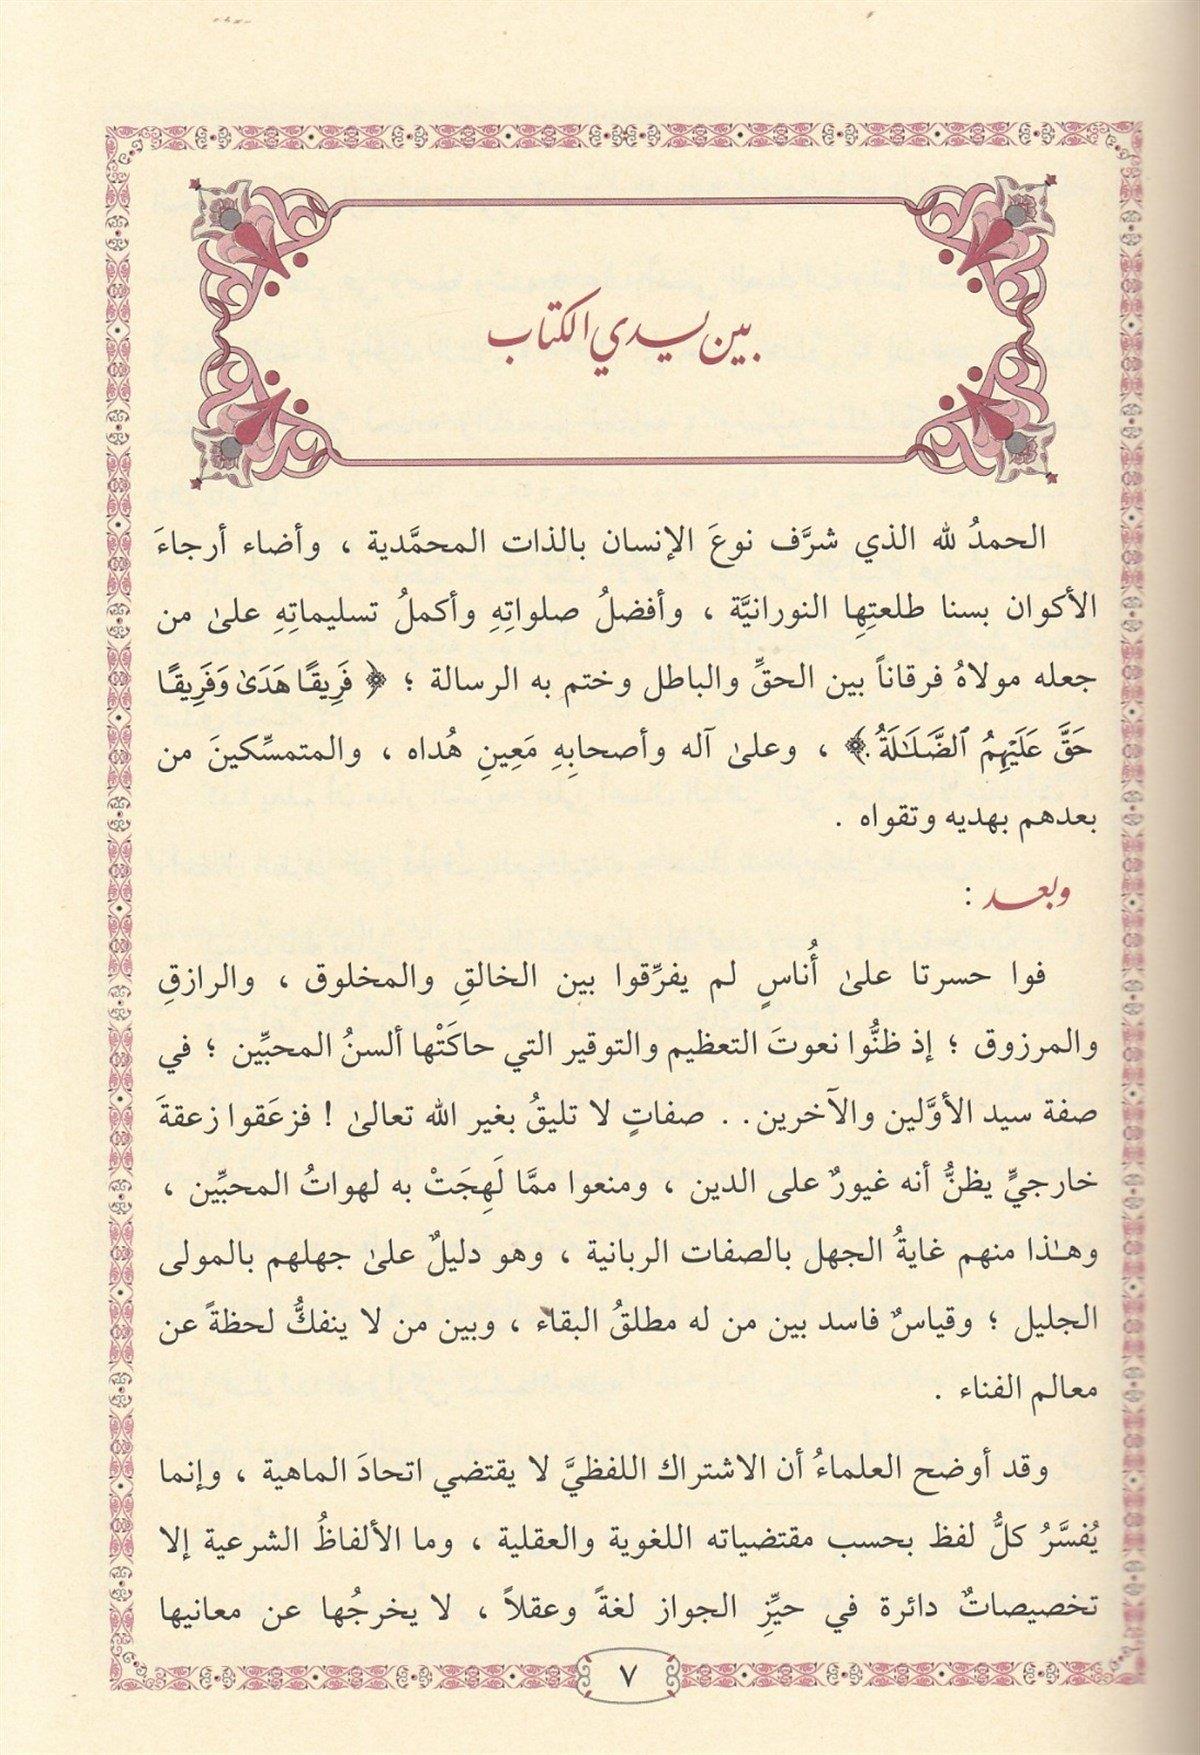 بين يدي الكتاب
الحمدُ لله الذي شرَّف نوعَ الإنسان بالذات المحمَّدية ، وأضاء أرجاءَ
الأكوان بسنا طلعتِها النورانيَّة ، وأفضلُ صلواتِهِ وأكملُ تسليماتِهِ علىٰ من
جعله مولاهُ فرقاناً بين الحقِّ والباطل وختم به الرسالة ؛ ﴿ فَرِيقًا هَدَىٰ وَفَرِيقًا
حَقَّ عَلَيْهِمُ ٱلضَّلَـٰلَةُ ﴾ ، وعلىٰ آله وأصحابِهِ مَعِينِ هُداه ، والمتمسِّكينَ من
بعدهم بهديه وتقواه .
وبعد :
فوا حسرتا علىٰ أُناسٍ لم يفرِّقوا بين الخالقِ والمخلوق ، والرازقِ
والمرزوق ؛ إذ ظنُّوا نعوتَ التعظيم والتوقير التي حاكَتْها ألسنُ المحبِّين ؛ في
صفة سيد الأوَّلين والآخرين . . صفاتٍ لا تليقُ بغير الله تعالىٰ ! فزعَقوا زعقةَ
خارجيٍّ يظنُّ أنه غيورٌ على الدين ، ومنعوا ممَّا لَهِجَتْ به لهواتُ المحبِّين ،
وهـٰذا منهم غايةُ الجهل بالصفات الربانية ، وهو دليلٌ علىٰ جهلهم بالمولى
الجليل ؛ وقياسٌ فاسد بين من له مطلقُ البقاء ، وبين من لا ينفكُّ لحظةً عن
معالم الفناء .
وقد أوضح العلماءُ أن الاشتراك اللفظيَّ لا يقتضي اتحادَ الماهية ، وإنما
يُفسَّرُ كلُّ لفظ بحسب مقتضياته اللغوية والعقلية ، وما الألفاظُ الشرعية إلا
تخصيصاتٌ دائرة في حيِّزِ الجواز لغةً وعقلاً ، لا يخرجُها عن معانيها
٧